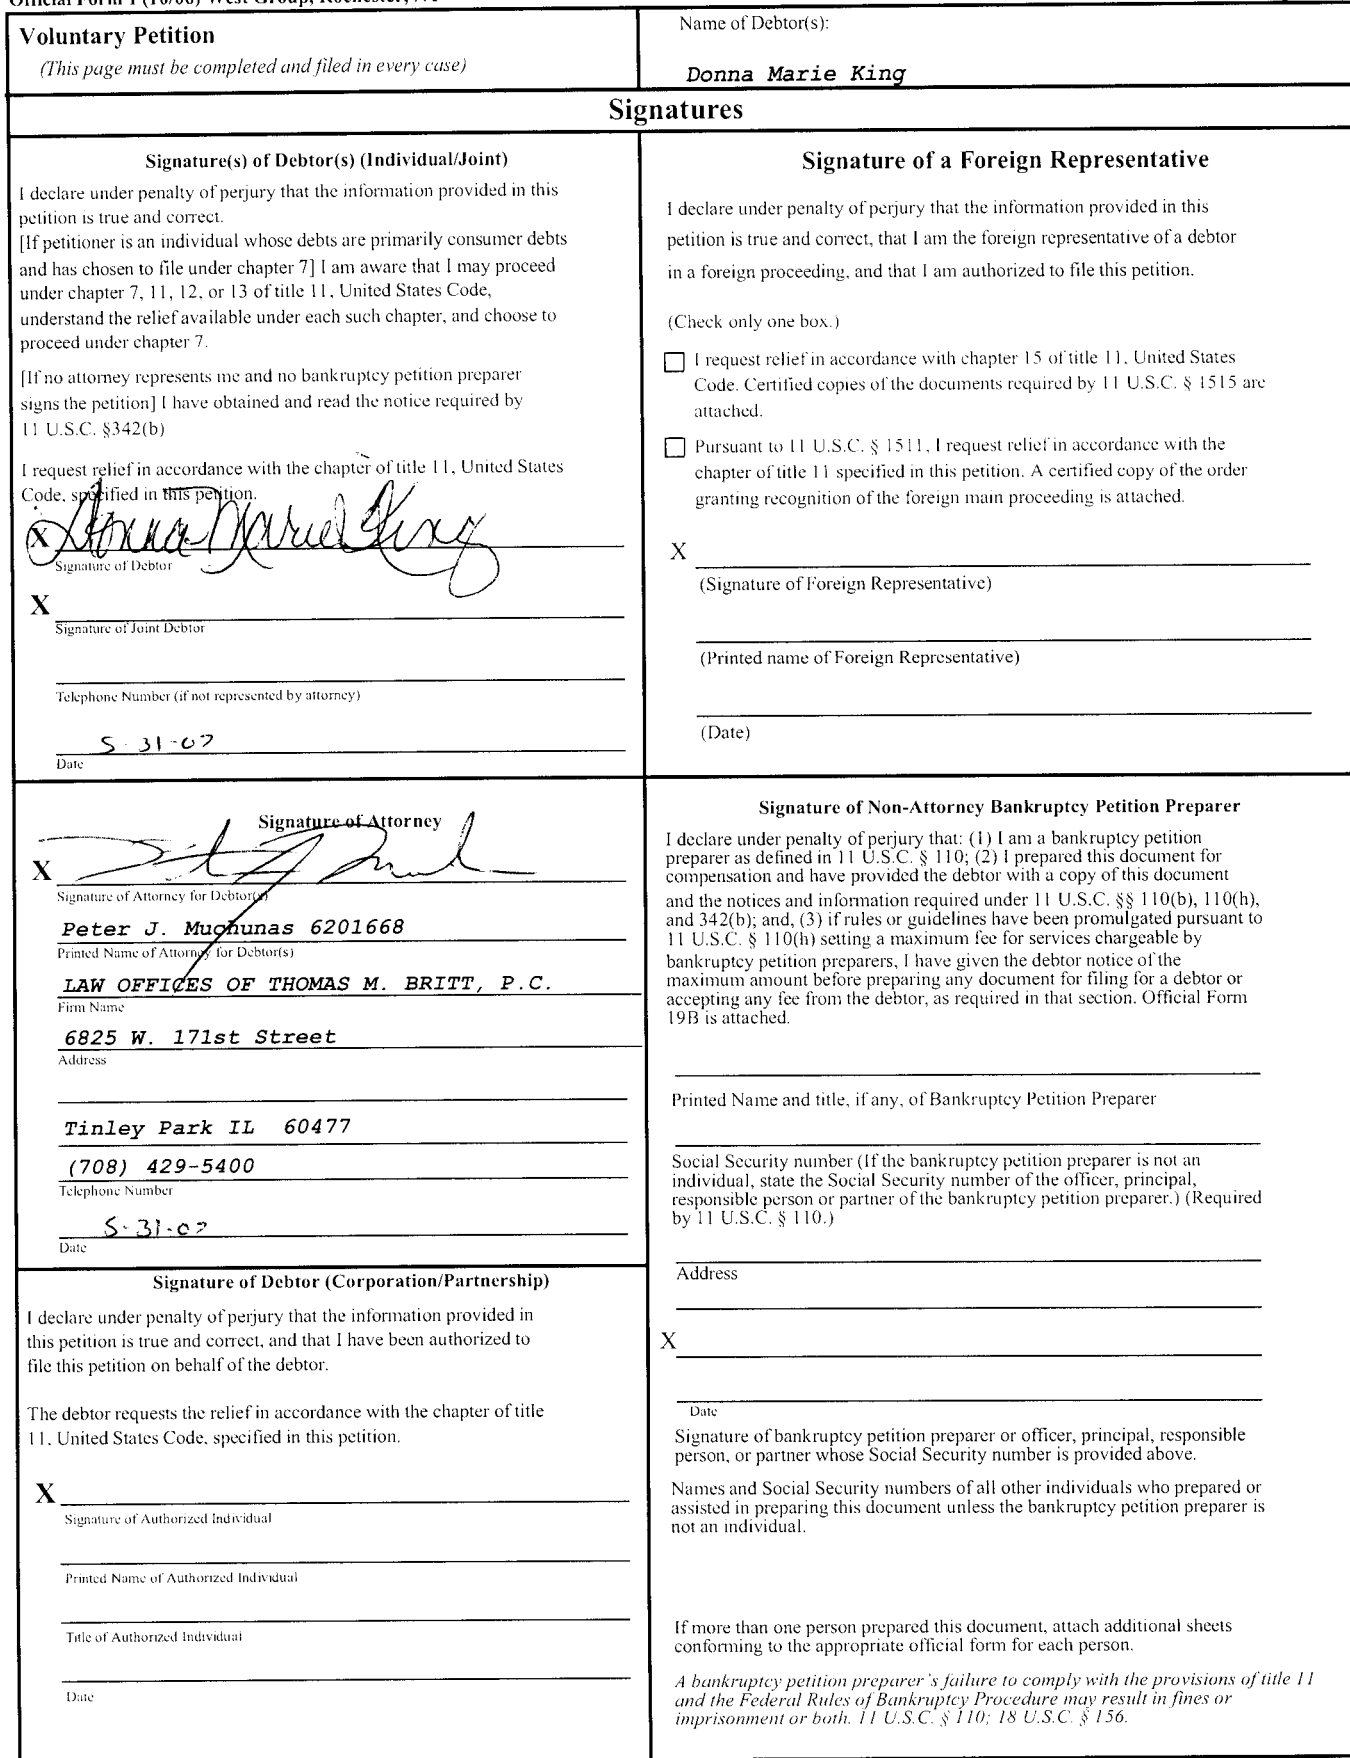 Voluntary Petition
(This page must be completed and filed in every case)
Name of Debtor(s):
Donna Marie King
Signatures
Signature(s) of Debtor(s) (Individual/Joint)
I declare under penalty of perjury that the information provided in this
petition is true and correct.
[If petitioner is an individual whose debts are primarily consumer debts
and has chosen to file under chapter 7] I am aware that I may proceed
under chapter 7, 11, 12, or 13 of title 11, United States Code,
understand the relief available under each such chapter, and choose to
proceed under chapter 7.
[If no attorney represents me and no bankruptcy petition preparer
signs the petition] I have obtained and read the notice required by
11 U.S.C. §342(b)
I request relief in accordance with the chapter of title 11, United States
Code, specified in this petition.
X Donna Marie King
Signature of Debtor
X
Signature of Joint Debtor
Telephone Number (if not represented by attorney)
5-31-07
Date
Signature of Attorney
X
Signature of Attorney for Debtor(s)
Peter J. Muchunas 6201668
Printed Name of Attorney for Debtor(s)
LAW OFFICES OF THOMAS M. BRITT, P.C.
Firm Name
6825 W. 171st Street
Address
Tinley Park IL 60477
(708) 429-5400
Telephone Number
5-31-07
Date
Signature of Debtor (Corporation/Partnership)
I declare under penalty of perjury that the information provided in
this petition is true and correct, and that I have been authorized to
file this petition on behalf of the debtor.
The debtor requests the relief in accordance with the chapter of title
11, United States Code, specified in this petition.
X
Signature of Authorized Individual
Printed Name of Authorized Individual
Title of Authorized Individual
Date
Signature of a Foreign Representative
I declare under penalty of perjury that the information provided in this
petition is true and correct, that I am the foreign representative of a debtor
in a foreign proceeding, and that I am authorized to file this petition.
(Check only one box.)
I request relief in accordance with chapter 15 of title 11, United States
Code. Certified copies of the documents required by 11 U.S.C. § 1515 are
attached.
Pursuant to 11 U.S.C. § 1511, I request relief in accordance with the
chapter of title 11 specified in this petition. A certified copy of the order
granting recognition of the foreign main proceeding is attached.
X
(Signature of Foreign Representative)
(Printed name of Foreign Representative)
(Date)
Signature of Non-Attorney Bankruptcy Petition Preparer
I declare under penalty of perjury that: (1) I am a bankruptcy petition
preparer as defined in 11 U.S.C. § 110; (2) I prepared this document for
compensation and have provided the debtor with a copy of this document
and the notices and information required under 11 U.S.C. §§ 110(b), 110(h),
and 342(b); and, (3) if rules or guidelines have been promulgated pursuant to
11 U.S.C. § 110(h) setting a maximum fee for services chargeable by
bankruptcy petition preparers, I have given the debtor notice of the
maximum amount before preparing any document for filing for a debtor or
accepting any fee from the debtor, as required in that section. Official Form
19B is attached.
Printed Name and title, if any, of Bankruptcy Petition Preparer
Social Security number (If the bankruptcy petition preparer is not an
individual, state the Social Security number of the officer, principal,
responsible person or partner of the bankruptcy petition preparer.) (Required
by 11 U.S.C. § 110.)
Address
X
Date
Signature of bankruptcy petition preparer or officer, principal, responsible
person, or partner whose Social Security number is provided above.
Names and Social Security numbers of all other individuals who prepared or
assisted in preparing this document unless the bankruptcy petition preparer is
not an individual.
If more than one person prepared this document, attach additional sheets
conforming to the appropriate official form for each person.
A bankruptcy petition preparer's failure to comply with the provisions of title 11
and the Federal Rules of Bankruptcy Procedure may result in fines or
imprisonment or both. 11 U.S.C. § 110; 18 U.S.C. § 156.